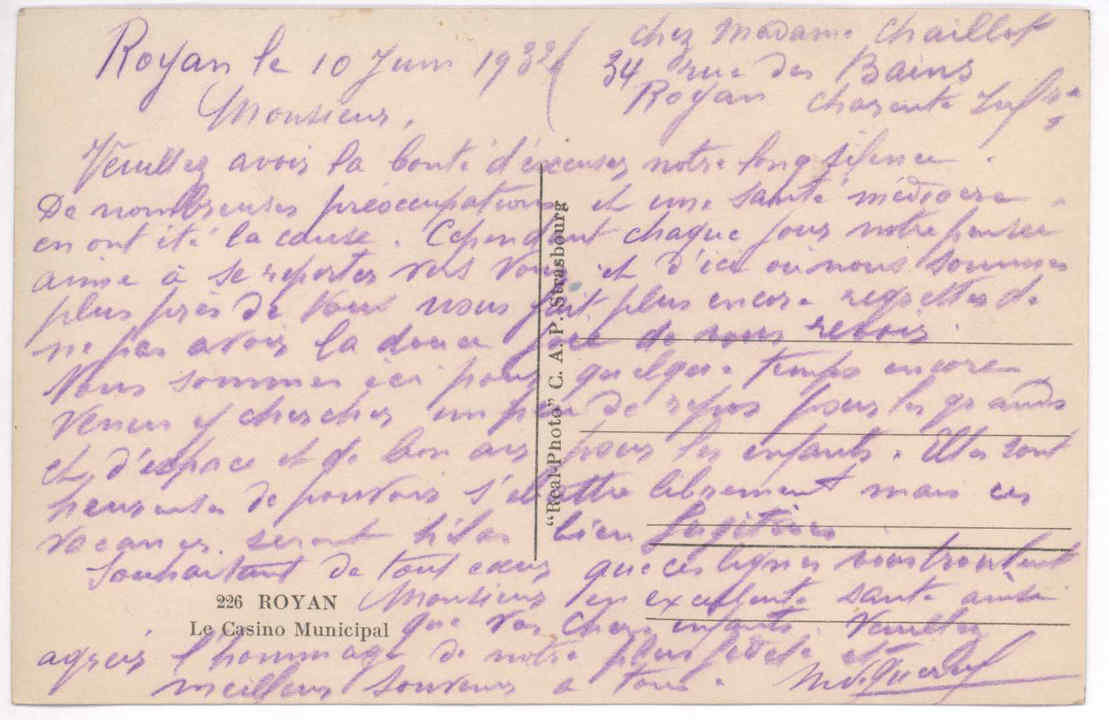 Royan le 10 Juin 1932
chez Madame Chaillot
34 rue des Bains
Royan Charente Infre
Monsieur,
Veuillez avoir la bonté d'excuser notre long silence.
De nombreuses préoccupations et une santé médiocre
en ont été la cause. Cependant chaque jour notre pensée
aime à se reporter vers vous et d'ici où nous sommes
plus près de vous nous fait plus encore regretter de
ne pas avoir la douce joie de vous revoir.
Nous sommes ici pour quelque temps encore
venus y chercher un peu de repos pour les grands
et d'espace et de bon air pour les enfants. Elles sont
heureuses de pouvoir s'ébattre librement mais ces
vacances seront hélas bien fugitives
Souhaitant de tout cœur que ces lignes vous trouvent
Monsieur en excellente santé ainsi
que vos chers enfants. Veuillez
agréer l'hommage de notre plus et
meilleur souvenir à tous.
"Real-Photo" C. A. P. Strasbourg
226 ROYAN
Le Casino Municipal